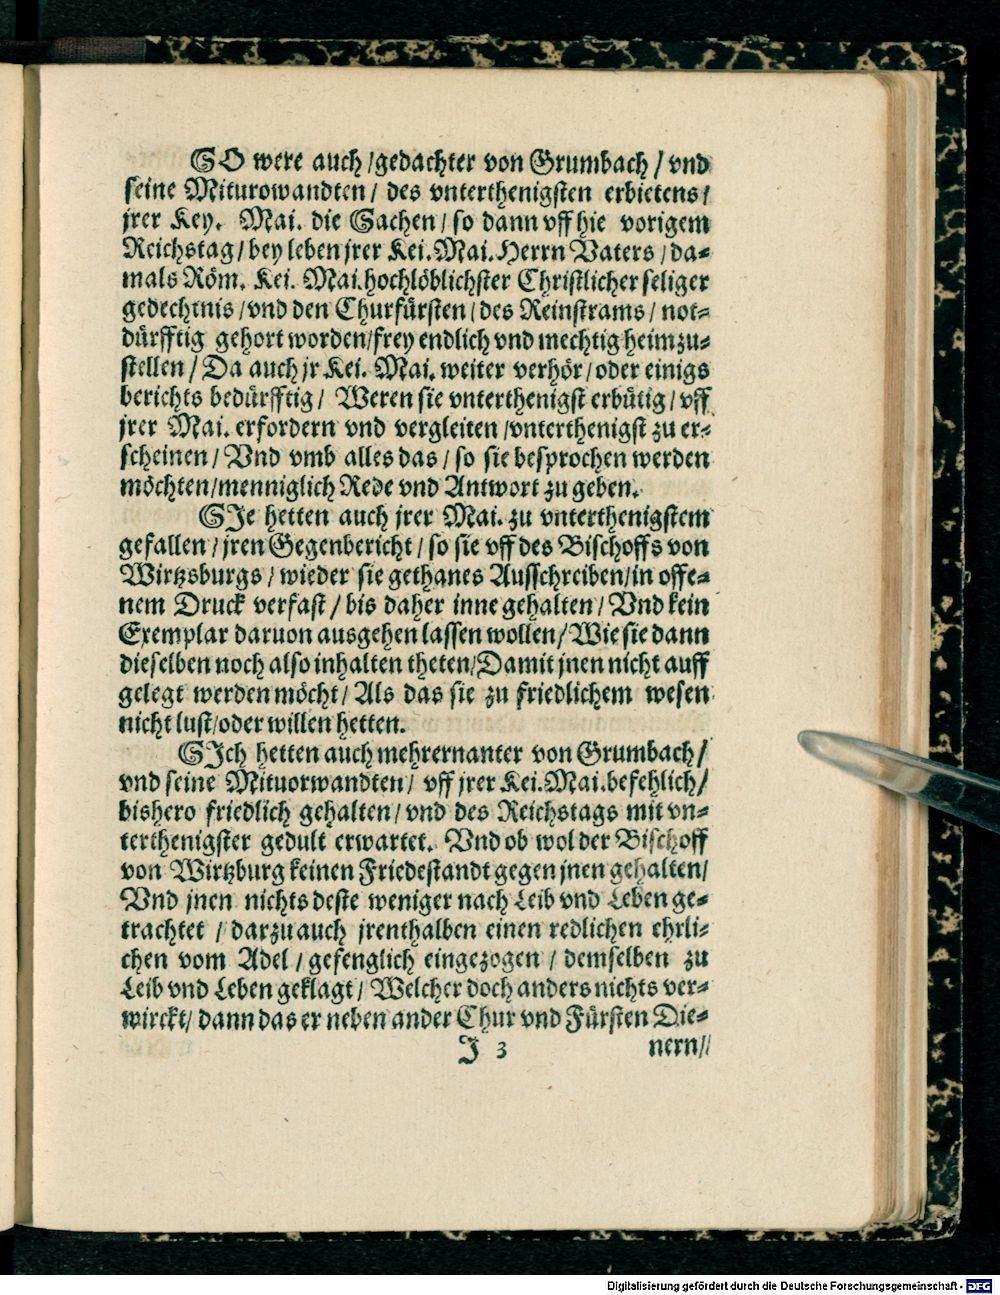 SO were auch /gedachter von Grumbach / vnd
seine Miturowandten / des vnterthenigsten erbietens /
jrer Key. Mai. die Sachen / so dann vff hie vorigem
Reichstag / bey leben jrer Kei. Mai. Herrn Vaters / da-
mals Röm. Kei. Mai. hochlöblichster Christlicher seliger
gedechtnis / vnd den Churfürsten / des Reinstrams / not-
dürfftig gehort worden/frey endlich vnd mechtig heimzu-
stellen / Da auch jr Kei. Mai. weiter verhör / oder einigs
berichts bedürfftig / Weren sie vnterthenigst erbütig / vff
jrer Mai. erfordern vnd vergleiten /vnterthenigst zu er-
scheinen / Vnd vmb alles das / so sie besprochen werden
möchten/menniglich Rede vnd Antwort zu geben.
SJe hetten auch jrer Mai. zu vnterthenigstem
gefallen / jren Gegenbericht / so sie vff des Bischoffs von
Wirtzsburgs / wieder sie gethanes Ausschreiben/in offe-
nem Druck verfast / bis daher inne gehalten / Vnd kein
Exemplar daruon ausgehen lassen wollen / Wie sie dann
dieselben noch also inhalten theten/Damit jnen nicht auff
gelegt werden möcht / Als das sie zu friedlichem wesen
nicht lust/oder willen hetten.
SJch hetten auch mehrernanter von Grumbach /
vnd seine Mituorwandten / vff jrer Kei. Mai. befehlich /
bishero friedlich gehalten / vnd des Reichstags mit vn-
terthenigster gedult erwartet. Vnd ob wol der Bischoff
von Wirtzburg keinen Friedestandt gegen jnen gehalten /
Vnd jnen nichts deste weniger nach Leib vnd Leben ge-
trachtet / darzu auch jrenthalben einen redlichen ehrli-
chen vom Adel / gefenglich eingezogen / demselben zu
Leib vnd Leben geklagt / Welcher doch anders nichts ver-
wirckt/ dann das er neben ander Chur vnd Fürsten Die-
J 3 nern//
Digitalisierung gefördert durch die Deutsche Forschungsgemeinschaft - DFG